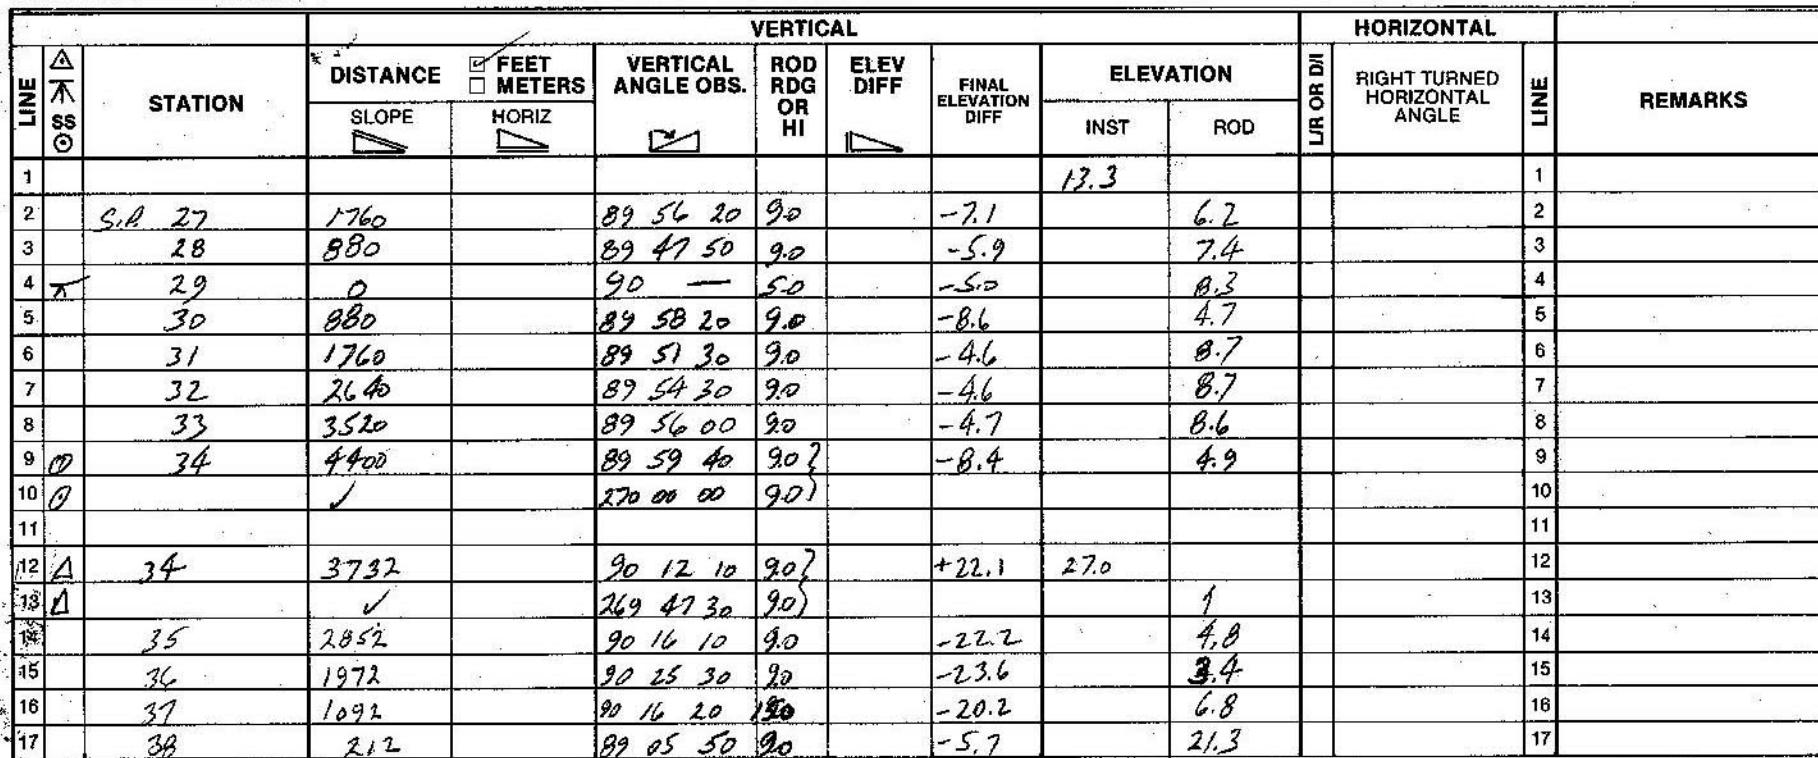 VERTICAL HORIZONTAL
LINE SS STATION DISTANCE ☑ FEET ☐ METERS VERTICAL ANGLE OBS. ROD RDG OR HI ELEV DIFF FINAL ELEVATION DIFF ELEVATION L/R OR D/I RIGHT TURNED HORIZONTAL ANGLE LINE REMARKS
SLOPE HORIZ INST ROD
1 13.3 1
2 S.P. 27 1760 89 56 20 9.0 -7.1 6.2 2
3 28 880 89 47 50 9.0 -5.9 7.4 3
4 29 0 90 — 5.0 -5.0 8.3 4
5 30 880 89 58 20 9.0 -8.6 4.7 5
6 31 1760 89 51 30 9.0 -4.6 8.7 6
7 32 2640 89 54 30 9.0 -4.6 8.7 7
8 33 3520 89 56 00 9.0 -4.7 8.6 8
9 34 4400 89 59 40 9.0 -8.4 4.9 9
10 ✓ 270 00 00 9.0 10
11 11
12 Δ 34 3732 90 12 10 9.0 +22.1 27.0 12
13 Δ ✓ 269 47 30 9.0 13
14 35 2852 90 16 10 9.0 -22.2 4.8 14
15 36 1972 90 25 30 9.0 -23.6 3.4 15
16 37 1092 90 16 20 -20.2 6.8 16
17 38 212 89 05 50 9.0 -5.7 21.3 17